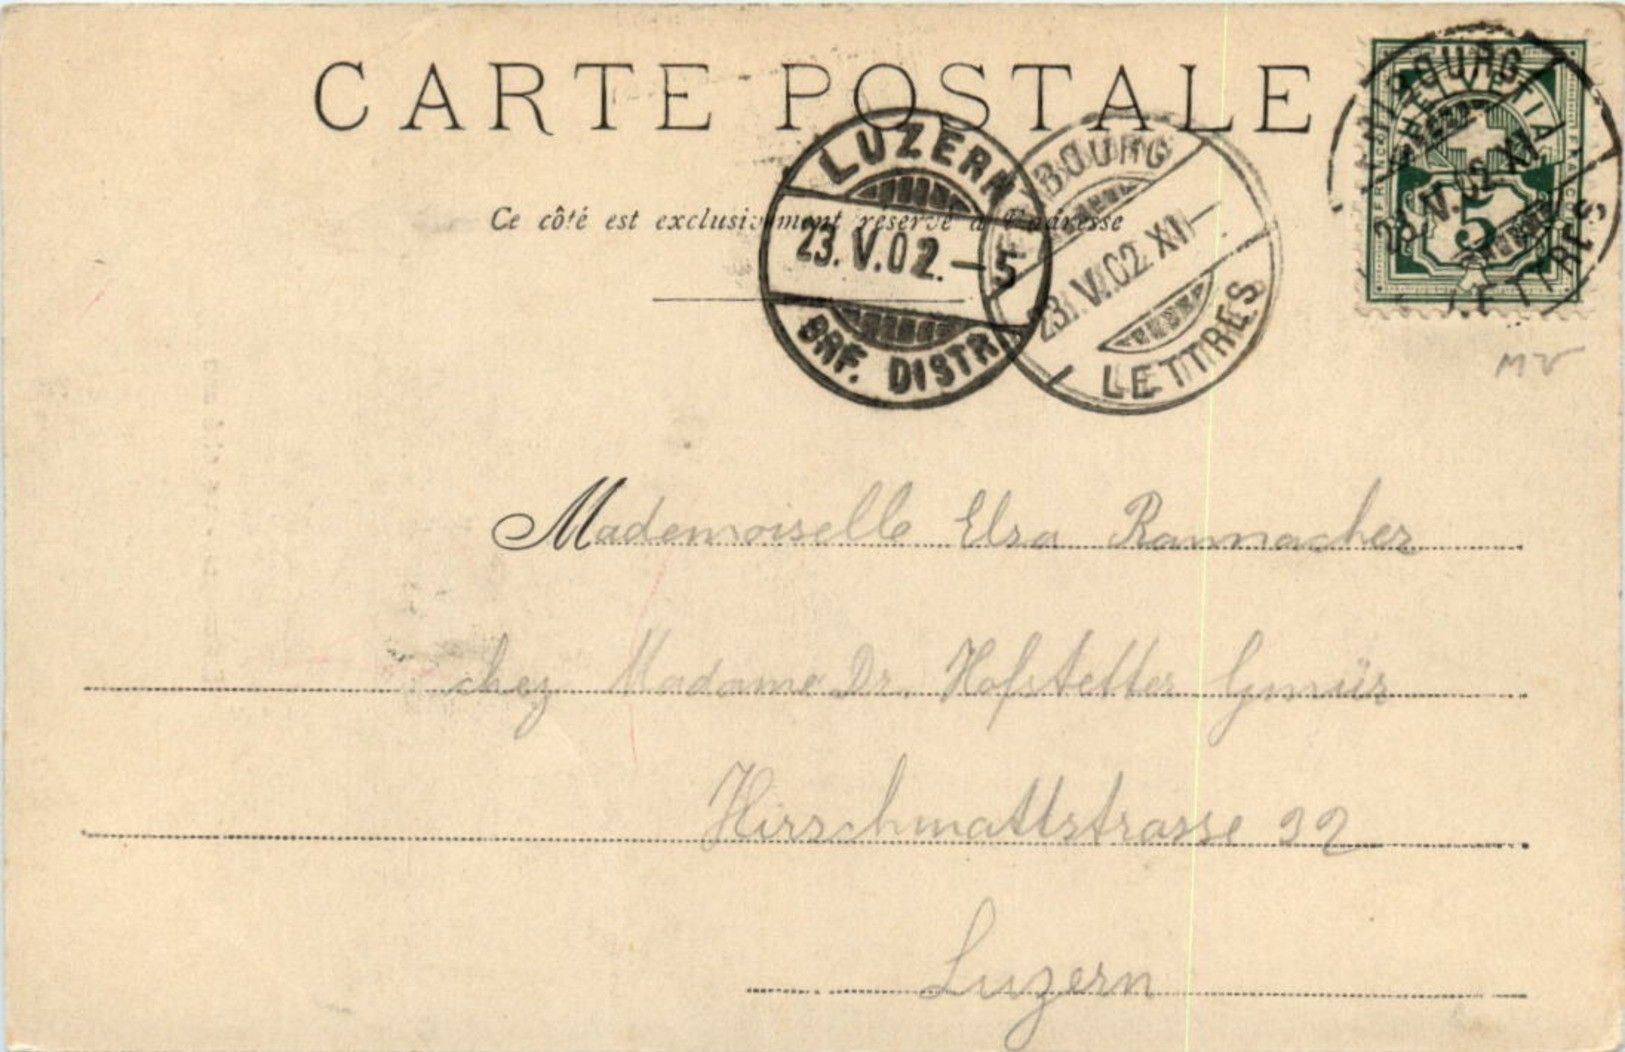 CARTE POSTALE
Ce côté est exclusivement réservé à l'adresse
LUZERN
23.V.02.–5
BRF. DISTR.
FRIBOURG
23.V.02.XI–
LETTRES
FRIBOURG
23.V.02.XI
LETTRES
HELVETIA
FRANCO
5
Mademoiselle Elsa Rannacher
chez Madame Dr. Hofstetter Gmür
Hirschmattstrasse 22
Luzern